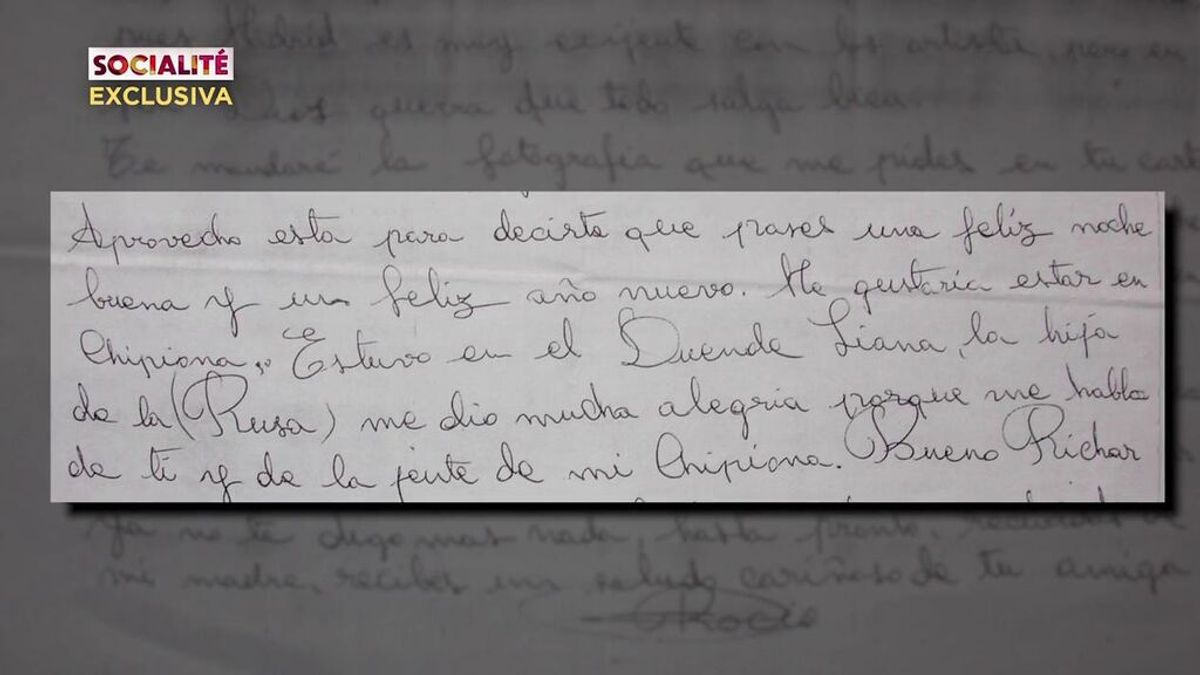 SOCIALITÉ
EXCLUSIVA
pues Madrid es muy exijente con los artista, pero en
Dios querra que todo salga bien
Te mandaré la fotografia que me pides en tu cart
Aprovecho esta para decirte que pases una felíz noche
buena y un feliz año nuevo. Me gustaría estar en
Chipiona. Estuvo en el Duende Liana, la hija
de la (Rusa) me dio mucha alegria porque me habla
de ti y de la jente de mi Chipiona. Bueno Richar
ya no te digo mas nada, hasta pronto, recuerdos de
mi madre, recibes un saludo cariñoso de tu amiga
Rocio